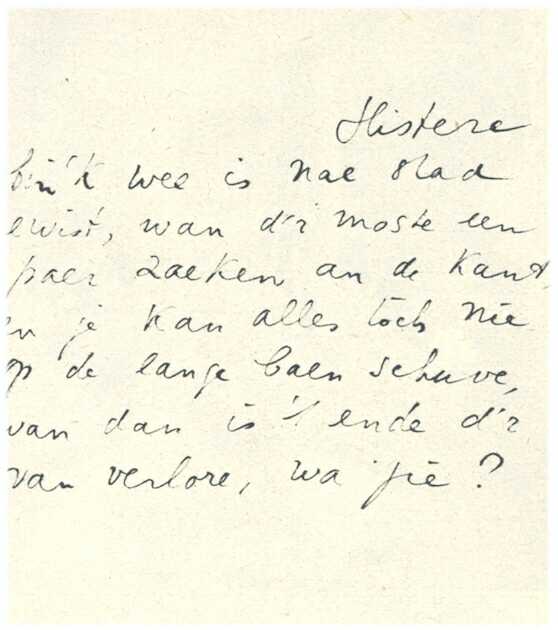 Histere
bin'k wee is nae stad
ewist, wan d'r moste een
paer zaeken an de kant,
en je kan alles toch nie
op de lange baen schuve,
wan dan is 't ende d'r
van verlore, wa jie?